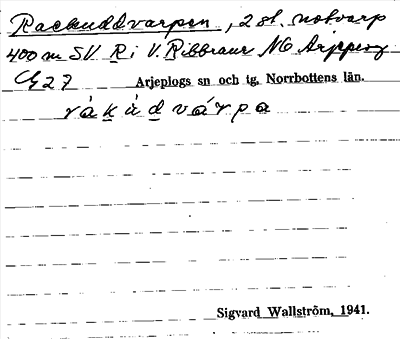 Rackuddvarpen, 2 st. notvarp
400 m SV R i V. Ribbraur NO Arjeplog
Cg 27 Arjeplogs sn och tg, Norrbottens län.
ràkàdvárpa
Sigvard Wallström, 1941.